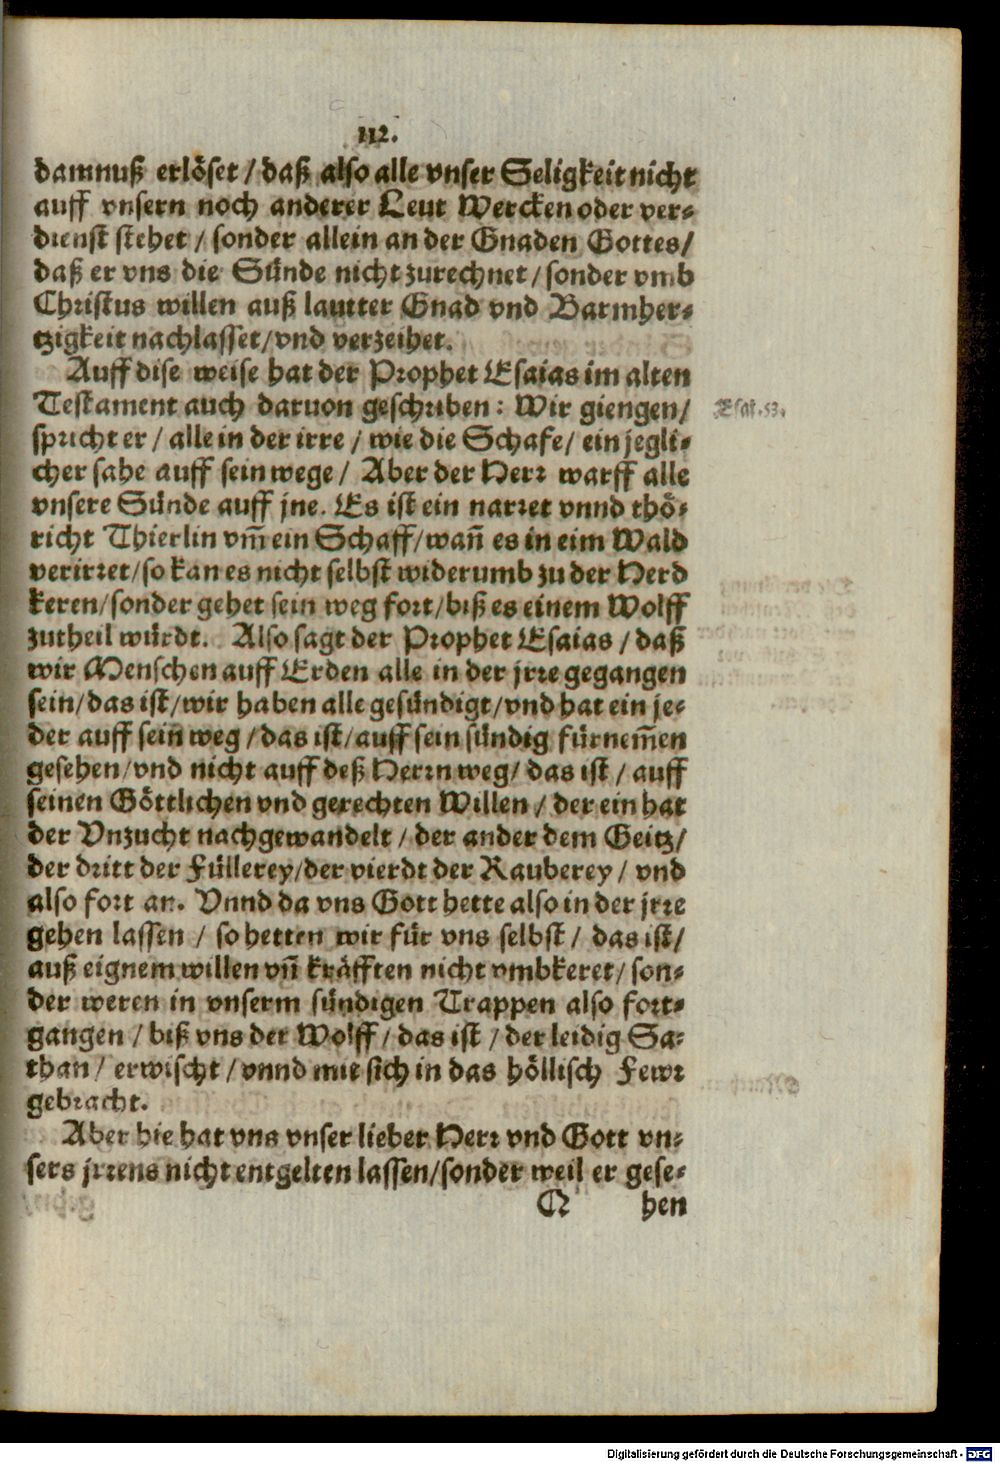 112.
damnuß erlöset / daß also alle vnser Seligkeit nicht
auff vnsern noch anderer Leut Wercken oder ver-
dienst stehet / sonder allein an der Gnaden Gottes /
daß er vns die Sünde nicht zurechnet / sonder vmb
Christus willen auß lautter Gnad vnd Barmher-
tzigkeit nachlasset / vnd verzeihet.
Auff dise weise hat der Prophet Esaias im alten
Testament auch daruon geschriben : Wir giengen /
Esai. 53.
spricht er / alle in der irre / wie die Schafe / ein jegli-
cher sahe auff sein wege / Aber der Herr warff alle
vnsere Sünde auff jne. Es ist ein narret vnnd thö-
richt Thierlin vm̃ ein Schaff / wañ es in eim Wald
verirret / so kan es nicht selbst widerumb zu der Herd
keren / sonder gehet sein weg fort / biß es einem Wolff
zutheil würdt. Also sagt der Prophet Esaias / daß
wir Menschen auff Erden alle in der jrre gegangen
sein / das ist / wir haben alle gesündigt / vnd hat ein je-
der auff sein weg / das ist / auff sein sündig fürnem̃en
gesehen / vnd nicht auff deß Herrn weg / das ist / auff
seinen Göttlichen vnd gerechten Willen / der ein hat
der Vnzucht nachgewandelt / der ander dem Geitz /
der dritt der Füllerey / der vierdt der Rauberey / vnd
also fort an. Vnnd da vns Gott hette also in der jrre
gehen lassen / so hetten wir für vns selbst / das ist /
auß eignem willen vñ kräfften nicht vmbkeret / son-
der weren in vnserm sündigen Trappen also fort-
gangen / biß vns der Wolff / das ist / der leidig Sa-
than / erwischt / vnnd mit sich in das höllisch Fewr
gebracht.
Aber hie hat vns vnser lieber Herr vnd Gott vn-
sers jrrens nicht entgelten lassen / sonder weil er gese-
Q hen
Digitalisierung gefördert durch die Deutsche Forschungsgemeinschaft - DFG